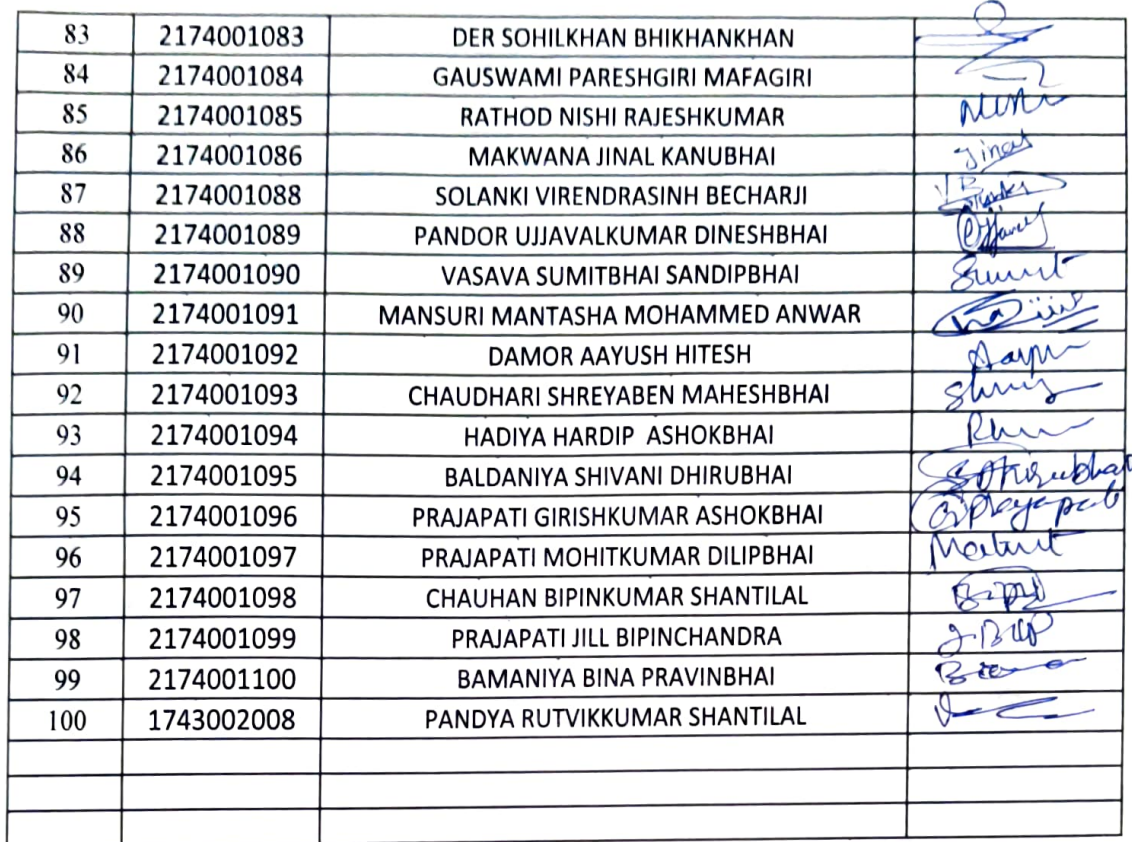 83 2174001083 DER SOHILKHAN BHIKHANKHAN
84 2174001084 GAUSWAMI PARESHGIRI MAFAGIRI
85 2174001085 RATHOD NISHI RAJESHKUMAR Nishi
86 2174001086 MAKWANA JINAL KANUBHAI Jinal
87 2174001088 SOLANKI VIRENDRASINH BECHARJI
88 2174001089 PANDOR UJJAVALKUMAR DINESHBHAI
89 2174001090 VASAVA SUMITBHAI SANDIPBHAI Sumit
90 2174001091 MANSURI MANTASHA MOHAMMED ANWAR
91 2174001092 DAMOR AAYUSH HITESH
92 2174001093 CHAUDHARI SHREYABEN MAHESHBHAI
93 2174001094 HADIYA HARDIP ASHOKBHAI
94 2174001095 BALDANIYA SHIVANI DHIRUBHAI
95 2174001096 PRAJAPATI GIRISHKUMAR ASHOKBHAI
96 2174001097 PRAJAPATI MOHITKUMAR DILIPBHAI
97 2174001098 CHAUHAN BIPINKUMAR SHANTILAL
98 2174001099 PRAJAPATI JILL BIPINCHANDRA
99 2174001100 BAMANIYA BINA PRAVINBHAI
100 1743002008 PANDYA RUTVIKKUMAR SHANTILAL